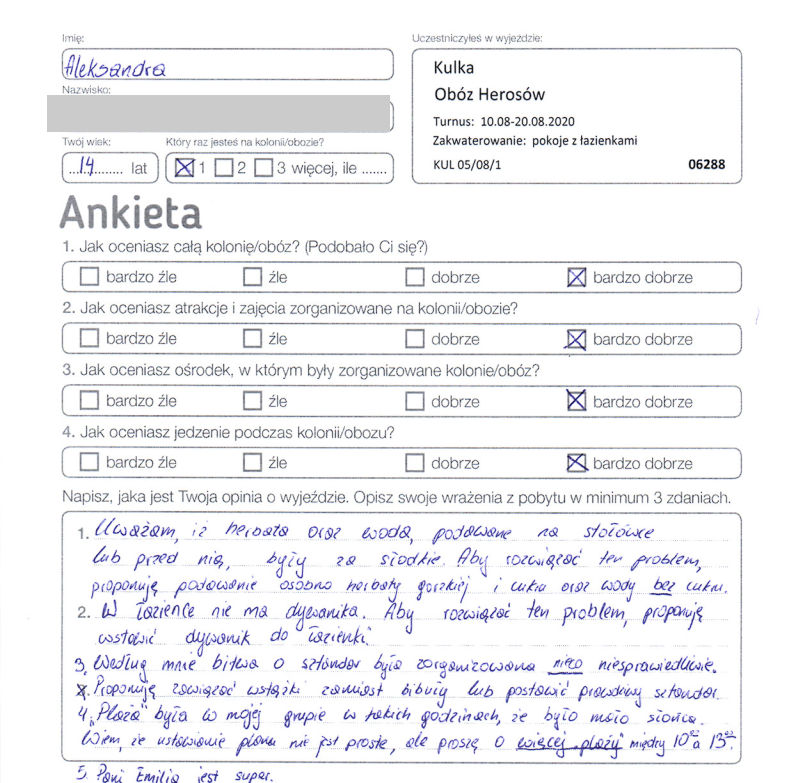 Imię:
Aleksandra
Nazwisko:
Twój wiek:
14 lat
Który raz jesteś na kolonii/obozie?
1 2 3 więcej, ile .......
Uczestniczyłeś w wyjeździe:
Kulka
Obóz Herosów
Turnus: 10.08-20.08.2020
Zakwaterowanie: pokoje z łazienkami
KUL 05/08/1 06288
Ankieta
1. Jak oceniasz całą kolonię/obóz? (Podobało Ci się?)
bardzo źle źle dobrze bardzo dobrze
2. Jak oceniasz atrakcje i zajęcia zorganizowane na kolonii/obozie?
bardzo źle źle dobrze bardzo dobrze
3. Jak oceniasz ośrodek, w którym były zorganizowane kolonie/obóz?
bardzo źle źle dobrze bardzo dobrze
4. Jak oceniasz jedzenie podczas kolonii/obozu?
bardzo źle źle dobrze bardzo dobrze
Napisz, jaka jest Twoja opinia o wyjeździe. Opisz swoje wrażenia z pobytu w minimum 3 zdaniach.
1. Uważam, iż herbata oraz woda, podawane na stołówce
lub przed nią, były za słodkie. Aby rozwiązać ten problem,
proponuję podawanie osobno herbaty gorzkiej i cukru oraz wody bez cukru.
2. W łazience nie ma dywanika. Aby rozwiązać ten problem, proponuję
wstawić dywanik do łazienki.
3. Według mnie bitwa o sztandar była zorganizowana nieco niesprawiedliwie.
Proponuję zawiązać wstążki zamiast bibuły lub postawić prawdziwy sztandar.
4. „Plaża" była w mojej grupie w takich godzinach, że było mało słońca.
Wiem, że ustawianie planu nie jest proste, ale proszę o więcej plaży między 10⁰⁰ a 13⁰⁰.
5. Pani Emilia jest super.